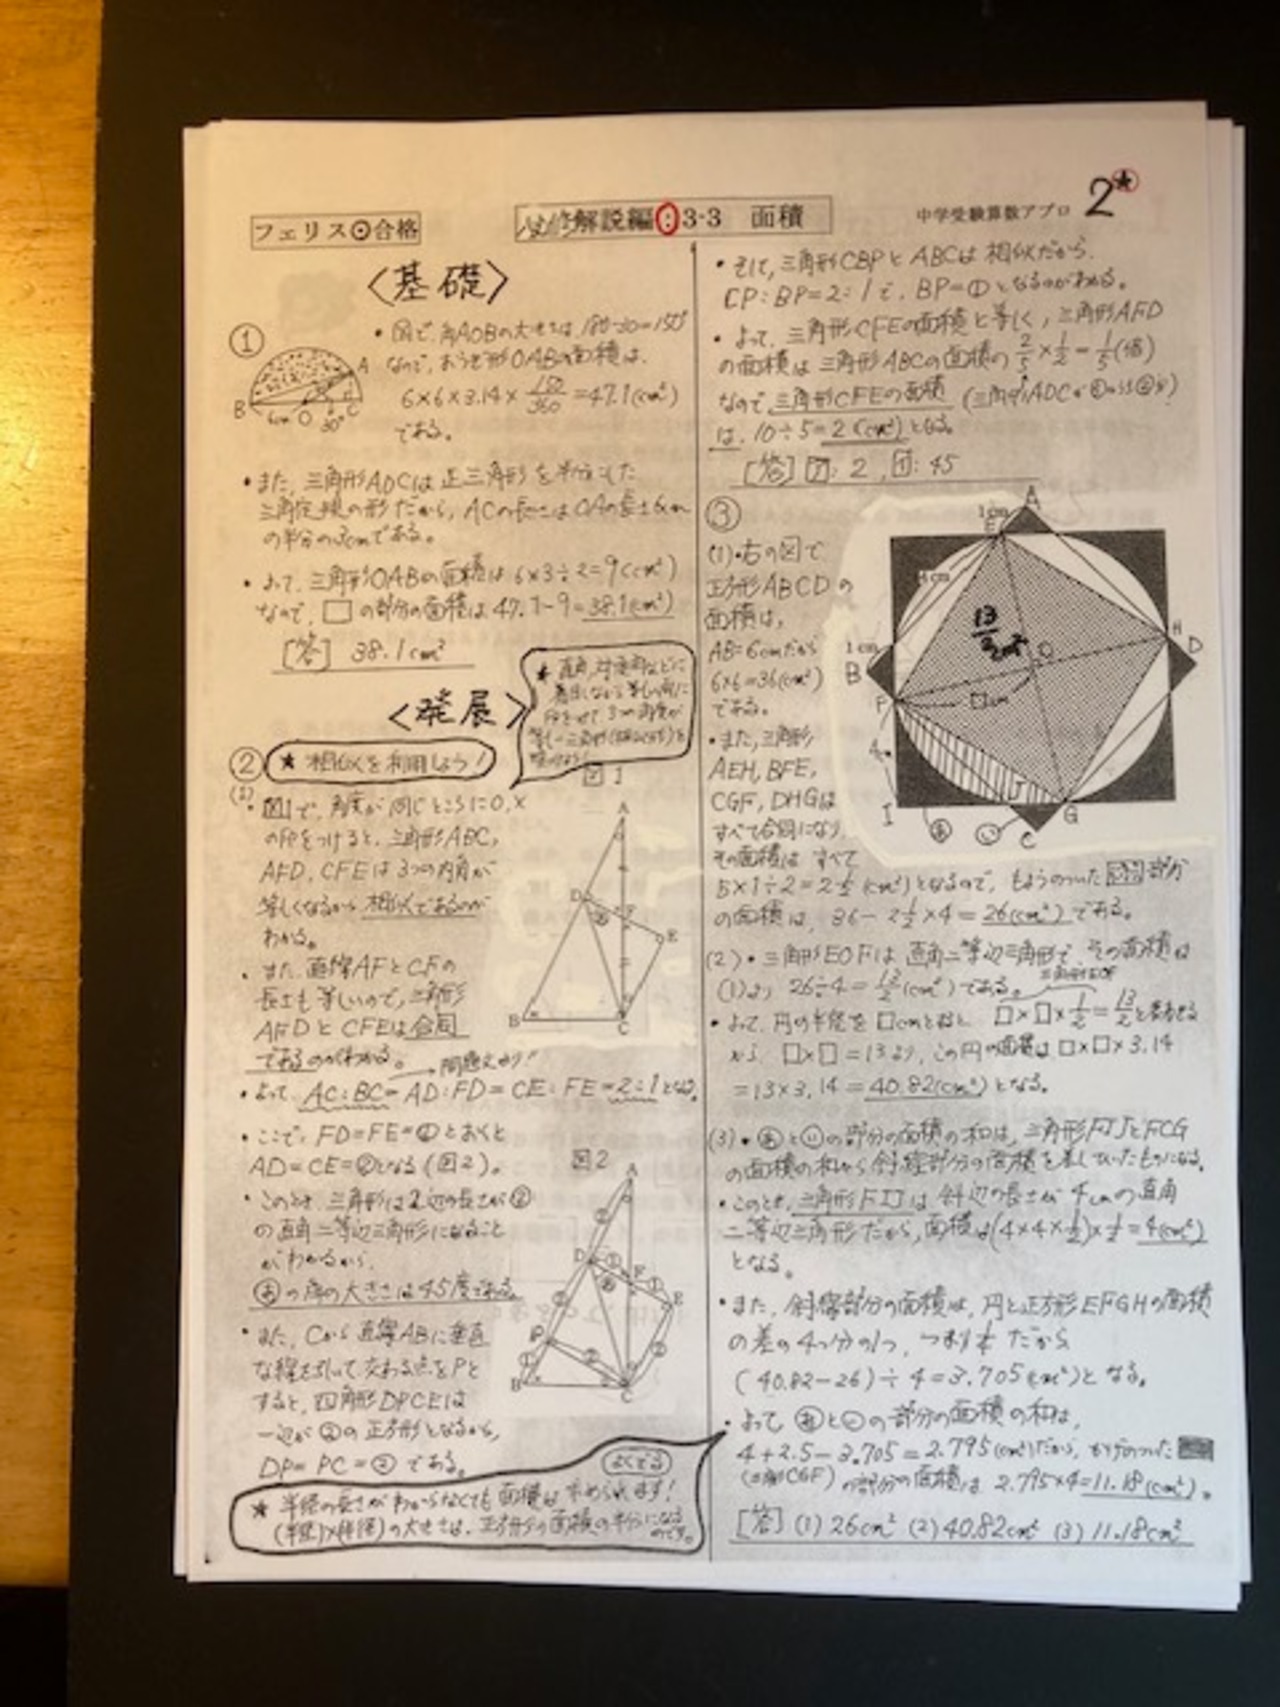 フェリス⊙合格
必修解説編:3-3 面積
中学受験算数アプロ
2★
〈基礎〉
①
・図で、角AOBの大きさは 180-30=150°
なので、おうぎ形OABの面積は、
6×6×3.14×150/360=47.1(cm²)
である。
A
B
6cm
O
C
30°
・また、三角形AOCは正三角形を半分にした
三角定規の形だから、ACの長さはOAの長さ6cm
の半分の3cmである。
・よって、三角形OABの面積は6×3÷2=9(cm²)
なので、□の部分の面積は47.1-9=38.1(cm²)
[答] 38.1cm²
〈発展〉
②
★相似を利用しよう!
(1)
・図1で、角度が同じところに○,×
の印をつけると、三角形ABC,
AFD, CFEは3つの内角が
等しくなるから相似であるのが
わかる。
図1
A
D
F
E
B
C
・また、直線AFとCFの
長さも等しいので、三角形
AFDとCFEは合同
であるのがわかる。
→問題文より!
・よって、AC:BC=AD:FD=CE:FE=2:1となる。
・ここで、FD=FE=①とおくと
AD=CE=②となる(図2)。
図2
A
D
F
E
P
B
C
・このとき、三角形は2辺の長さが②
の直角二等辺三角形になること
がわかるから、
あの角の大きさは45度である。
・また、Cから直線ABに垂直
な線を引いて交わる点をPと
すると、四角形DPCEは
一辺が②の正方形となるから、
DP=PC=②である。
よくでる
★半径の長さがわからなくても面積は求められます!
(半径)×(半径)の大きさは、正方形の面積の半分になるのです。
・そして、三角形CBPとABCは相似だから、
CP:BP=2:1で、BP=①となるのがわかる。
・よって、三角形CFEの面積と等しく、三角形AFD
の面積は三角形ABCの面積の2/5×1/2=1/5(倍)
なので、三角形CFEの面積
は、10÷5=2(cm²)となる。
[答] ア: 2, イ: 45
③
(1)・右の図で
正方形ABCDの
面積は、
AB=6cmだから
6×6=36(cm²)
である。
・また、三角形
AEH, BFE,
CGF, DHGは
すべて合同になり、
その面積はすべて
5×1÷2=2½(cm²)となるので、もようのついた部分
の面積は、36-2½×4=26(cm²)である。
A
1cm
E
4cm
13/2cm²
H
O
D
1cm
B
F
□cm
4
J
I
あ
い
G
C
(2)・三角形EOFは直角二等辺三角形で、その面積は
(1)より 26÷4=13/2(cm²)である。
三角形EOF
・よって、円の半径を□cmとすると、□×□×1/2=13/2と表せる
から、□×□=13より、この円の面積は□×□×3.14
=13×3.14=40.82(cm²)となる。
(3)・あといの部分の面積の和は、三角形FIJとFCG
の面積の和から斜線部分の面積を差しひいたものになる。
・このとき、三角形FIJは斜辺の長さが4cmの直角
二等辺三角形だから、面積は(4×4×1/2)×1/2=4(cm²)
となる。
・また、斜線部分の面積は、円と正方形EFGHの面積
の差の4つ分の1つ、つまり1/4だから
(40.82-26)÷4=3.705(cm²)となる。
・よって、あといの部分の面積の和は、
4+2.5-3.705=2.795(cm²)だから、かげのついた
(三角形CGF)
の部分の面積は、2.795×4=11.18(cm²)。
[答] (1) 26cm² (2) 40.82cm² (3) 11.18cm²